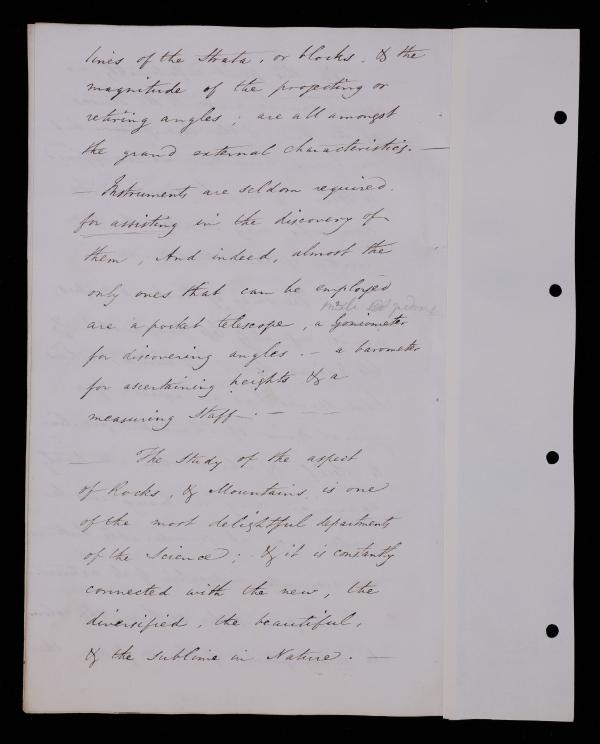 lines of the Strata, or blocks. & the
magnitude of the projecting or
retiring angles; are all amongst
the grand external characteristics. —
— Instruments are seldom required.
for assisting in the discovery of
them, And indeed, almost the
only ones that can be employed
are a pocket telescope, a Goniometer
for discovering angles. — a barometer
for ascertaining heights & a
measuring Staff. — —
— The Study of the aspect
of Rocks, & Mountains, is one
of the most delightful departments
of the Science; & it is constantly
connected with the new, the
diversified, the beautiful,
& the sublime in Nature. —